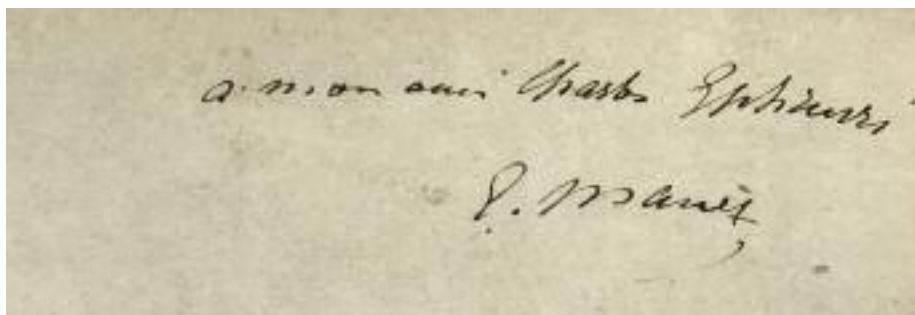 a mon ami Charles Ephrussi
E. Manet